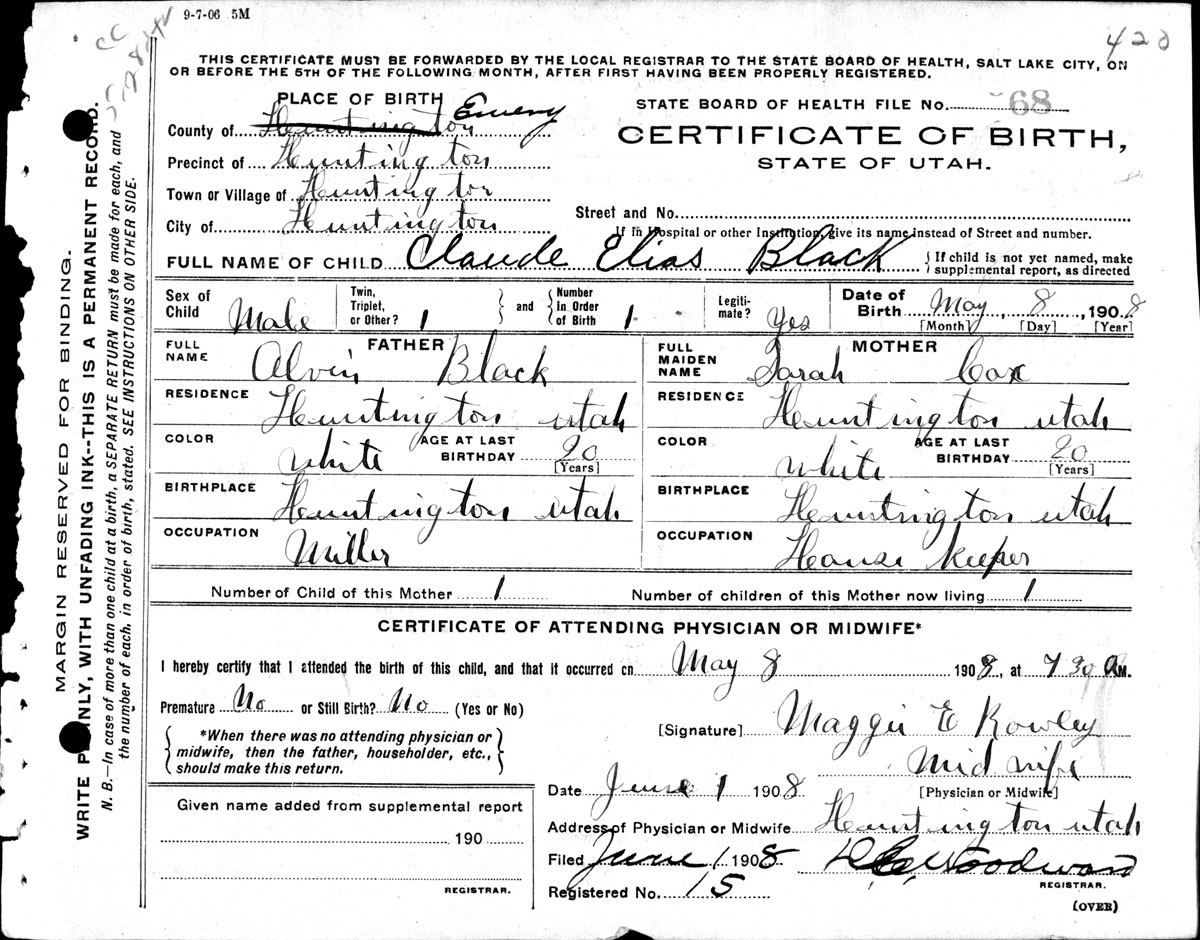 9-7-06 5M
420
THIS CERTIFICATE MUST BE FORWARDED BY THE LOCAL REGISTRAR TO THE STATE BOARD OF HEALTH, SALT LAKE CITY, ON
OR BEFORE THE 5TH OF THE FOLLOWING MONTH, AFTER FIRST HAVING BEEN PROPERLY REGISTERED.
MARGIN RESERVED FOR BINDING.
WRITE PLAINLY, WITH UNFADING INK--THIS IS A PERMANENT RECORD.
N. B.—In case of more than one child at a birth, a SEPARATE RETURN must be made for each, and
the number of each, in order of birth, stated. SEE INSTRUCTIONS ON OTHER SIDE.
PLACE OF BIRTH
County of Huntington Emery
Precinct of Huntington
Town or Village of Huntington
City of Huntington
STATE BOARD OF HEALTH FILE No. 68
CERTIFICATE OF BIRTH,
STATE OF UTAH.
Street and No.
If in Hospital or other Institution, give its name instead of Street and number.
FULL NAME OF CHILD Claude Elias Black { If child is not yet named, make supplemental report, as directed
Sex of Child Male Twin, Triplet, or Other? 1 } and { Number In Order of Birth 1 Legitimate? Yes Date of Birth May 8, 1908
[Month] [Day] [Year]
FATHER
FULL NAME Alvin Black
RESIDENCE Huntington utah
COLOR white AGE AT LAST BIRTHDAY 20
[Years]
BIRTHPLACE Huntington utah
OCCUPATION Miller
MOTHER
FULL MAIDEN NAME Sarah Cox
RESIDENCE Huntington utah
COLOR white AGE AT LAST BIRTHDAY 20
[Years]
BIRTHPLACE Huntington utah
OCCUPATION House Keeper
Number of Child of this Mother 1 Number of children of this Mother now living 1
CERTIFICATE OF ATTENDING PHYSICIAN OR MIDWIFE*
I hereby certify that I attended the birth of this child, and that it occurred on May 8 1908, at 7 30 A M.
Premature No or Still Birth? No (Yes or No)
{ *When there was no attending physician or
midwife, then the father, householder, etc.,
should make this return. }
[Signature] Maggie E Rowley
Mid wife
[Physician or Midwife]
Date June 1 1908
Address of Physician or Midwife Huntington utah
Filed June 1 1908
Woodward
REGISTRAR.
Registered No. 15
(OVER)
Given name added from supplemental report
190
REGISTRAR.